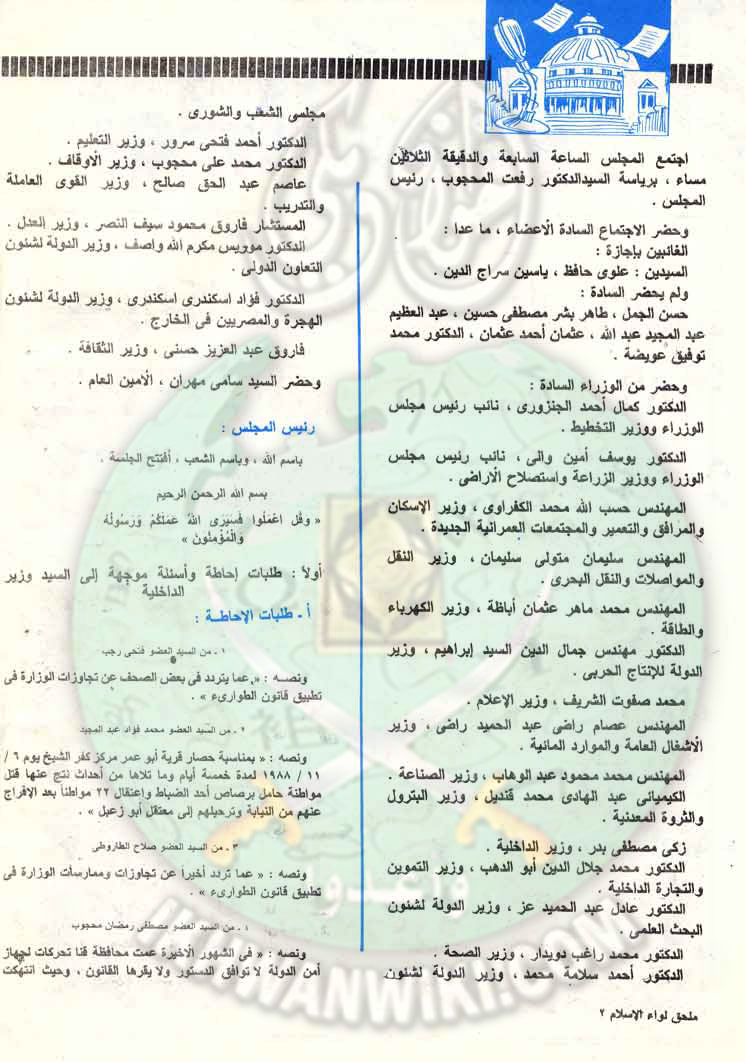 اجتمع المجلس الساعة السابعة والدقيقة الثلاثين
مساء ، برياسة السيدالدكتور رفعت المحجوب ، رئيس
المجلس .
وحضر الاجتماع السادة الأعضاء ، ما عدا :
الغائبين بإجازة :
السيدين : علوى حافظ ، ياسين سراج الدين .
ولم يحضر السادة :
حسن الجمل ، طاهر بشر مصطفى حسين ، عبد العظيم
عبد المجيد عبد الله ، عثمان أحمد عثمان ، الدكتور محمد
توفيق عويضة .
وحضر من الوزراء السادة :
الدكتور كمال أحمد الجنزورى ، نائب رئيس مجلس
الوزراء ووزير التخطيط .
الدكتور يوسف أمين والى ، نائب رئيس مجلس
الوزراء ووزير الزراعة واستصلاح الأراضى .
المهندس حسب الله محمد الكفراوى ، وزير الإسكان
والمرافق والتعمير والمجتمعات العمرانية الجديدة .
المهندس سليمان متولى سليمان ، وزير النقل
والمواصلات والنقل البحرى .
المهندس محمد ماهر عثمان أباظة ، وزير الكهرباء
والطاقة .
الدكتور مهندس جمال الدين السيد إبراهيم ، وزير
الدولة للإنتاج الحربى .
محمد صفوت الشريف ، وزير الإعلام .
المهندس عصام راضى عبد الحميد راضى ، وزير
الأشغال العامة والموارد المائية .
المهندس محمد محمود عبد الوهاب ، وزير الصناعة .
الكيميائى عبد الهادى محمد قنديل ، وزير البترول
والثروة المعدنية .
زكى مصطفى بدر ، وزير الداخلية .
الدكتور محمد جلال الدين أبو الدهب ، وزير التموين
والتجارة الداخلية .
الدكتور عادل عبد الحميد عز ، وزير الدولة لشئون
البحث العلمى .
الدكتور محمد راغب دويدار ، وزير الصحة .
الدكتور أحمد سلامة محمد ، وزير الدولة لشئون
مجلسى الشعب والشورى .
الدكتور أحمد فتحى سرور ، وزير التعليم .
الدكتور محمد على محجوب ، وزير الأوقاف .
عاصم عبد الحق صالح ، وزير القوى العاملة
والتدريب .
المستشار فاروق محمود سيف النصر ، وزير العدل .
الدكتور موريس مكرم الله واصف ، وزير الدولة لشئون
التعاون الدولى .
الدكتور فؤاد اسكندرى اسكندرى ، وزير الدولة لشئون
الهجرة والمصريين فى الخارج .
فاروق عبد العزيز حسنى ، وزير الثقافة .
وحضر السيد سامى مهران ، الأمين العام .
رئيس المجلس :
باسم الله ، وباسم الشعب ، أفتتح الجلسة .
بسم الله الرحمن الرحيم
« وَقُل اعْمَلُوا فَسَيَرَى اللهُ عَمَلَكُمْ وَرَسُولُهُ
وَالْمُؤْمِنُونَ »
أولاً : طلبات إحاطة وأسئلة موجهة إلى السيد وزير
الداخلية
أ ـ طلبات الإحاطـة :
١ ـ من السيد العضو فتحى رجب
ونصـه : « عما يتردد فى بعض الصحف عن تجاوزات الوزارة فى
تطبيق قانون الطوارىء » .
٢ ـ من السيد العضو محمد فؤاد عبد المجيد
ونصه : « بمناسبة حصار قرية أبو عمر مركز كفر الشيخ يوم ٦ /
١١ / ١٩٨٨ لمدة خمسة أيام وما تلاها من أحداث نتج عنها قتل
مواطنة حامل برصاص أحد الضباط وإعتقال ٢٢ مواطناً بعد الإفراج
عنهم من النيابة وترحيلهم إلى معتقل أبو زعبل » .
٣ ـ من السيد العضو صلاح الطاروطى
ونصه : « عما تردد أخيراً عن تجاوزات وممارسات الوزارة فى
تطبيق قانون الطوارىء » .
٤ ـ من السيد العضو مصطفى رمضان محجوب
ونصه : « فى الشهور الأخيرة عمت محافظة قنا تحركات لجهاز
أمن الدولة لا توافق الدستور ولا يقرها القانون ، وحيث انتهكت
ملحق لواء الإسلام ٢
وأعدوا
IKHWANWIKI.COM